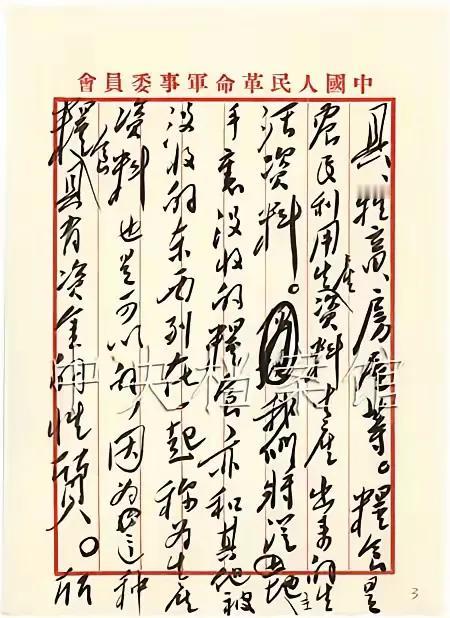 中國人民革命軍事委員會
具、牲畜、房屋等。糧食是
農民利用生產資料生產出來的生
活資料。我們將從地主
手裏沒收的糧食,亦和其他被
沒收的東西列在一起稱為生產
資料,也是可以的,因為這種
糧食具有資金的性質。所
中央档案馆
3